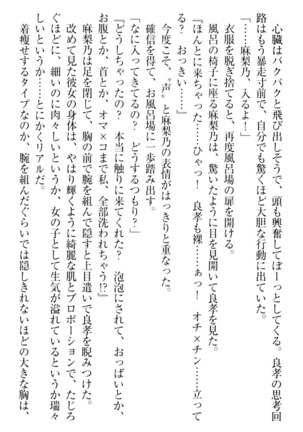 心臓はバクバクと飛び出しそうで、頭も興奮してぼーっとしてくる。良孝の思考回
路はもう暴走寸前で、自分でも驚くほど大胆な行動に出ていた。
「……麻梨乃、入るよ！」
衣服を脱ぎ捨てると、再度風呂場の扉を開ける。
風呂の椅子に座る麻梨乃は、驚いたように目を見開いて良孝を見た。
「ほんとに来ちゃった……ひゃっ！　良孝も裸……ぁっ！　オチ×チン……立って
る？　おっきい……」
今度こそ、〝声〟と麻梨乃の表情がはっきりと重なった。
確信を得て、お風呂場に一歩踏み出す。
「なに入ってきてるの？　どうするつもり？」
『どうしちゃったの？　本当に触りに来てくれた？　泡泡にされて、おっぱいとか、
お腹とか、首とか、オマ×コまで、全部洗われちゃう!?』
麻梨乃は足を閉じて、胸の前で腕を組んで隠すと上目遣いで良孝を睨みつけた。
改めて見た彼女の身体は、やはり輝くように綺麗な肌とプロポーションで、たじろ
ぐほどに、細いのに肉々しいというか、女の子として生気が溢れているというか瑞々
しいというか……とにかくリアルだ。
着痩せするタイプなのか、腕を組んだぐらいでは隠しきれないほどの大きな胸は、